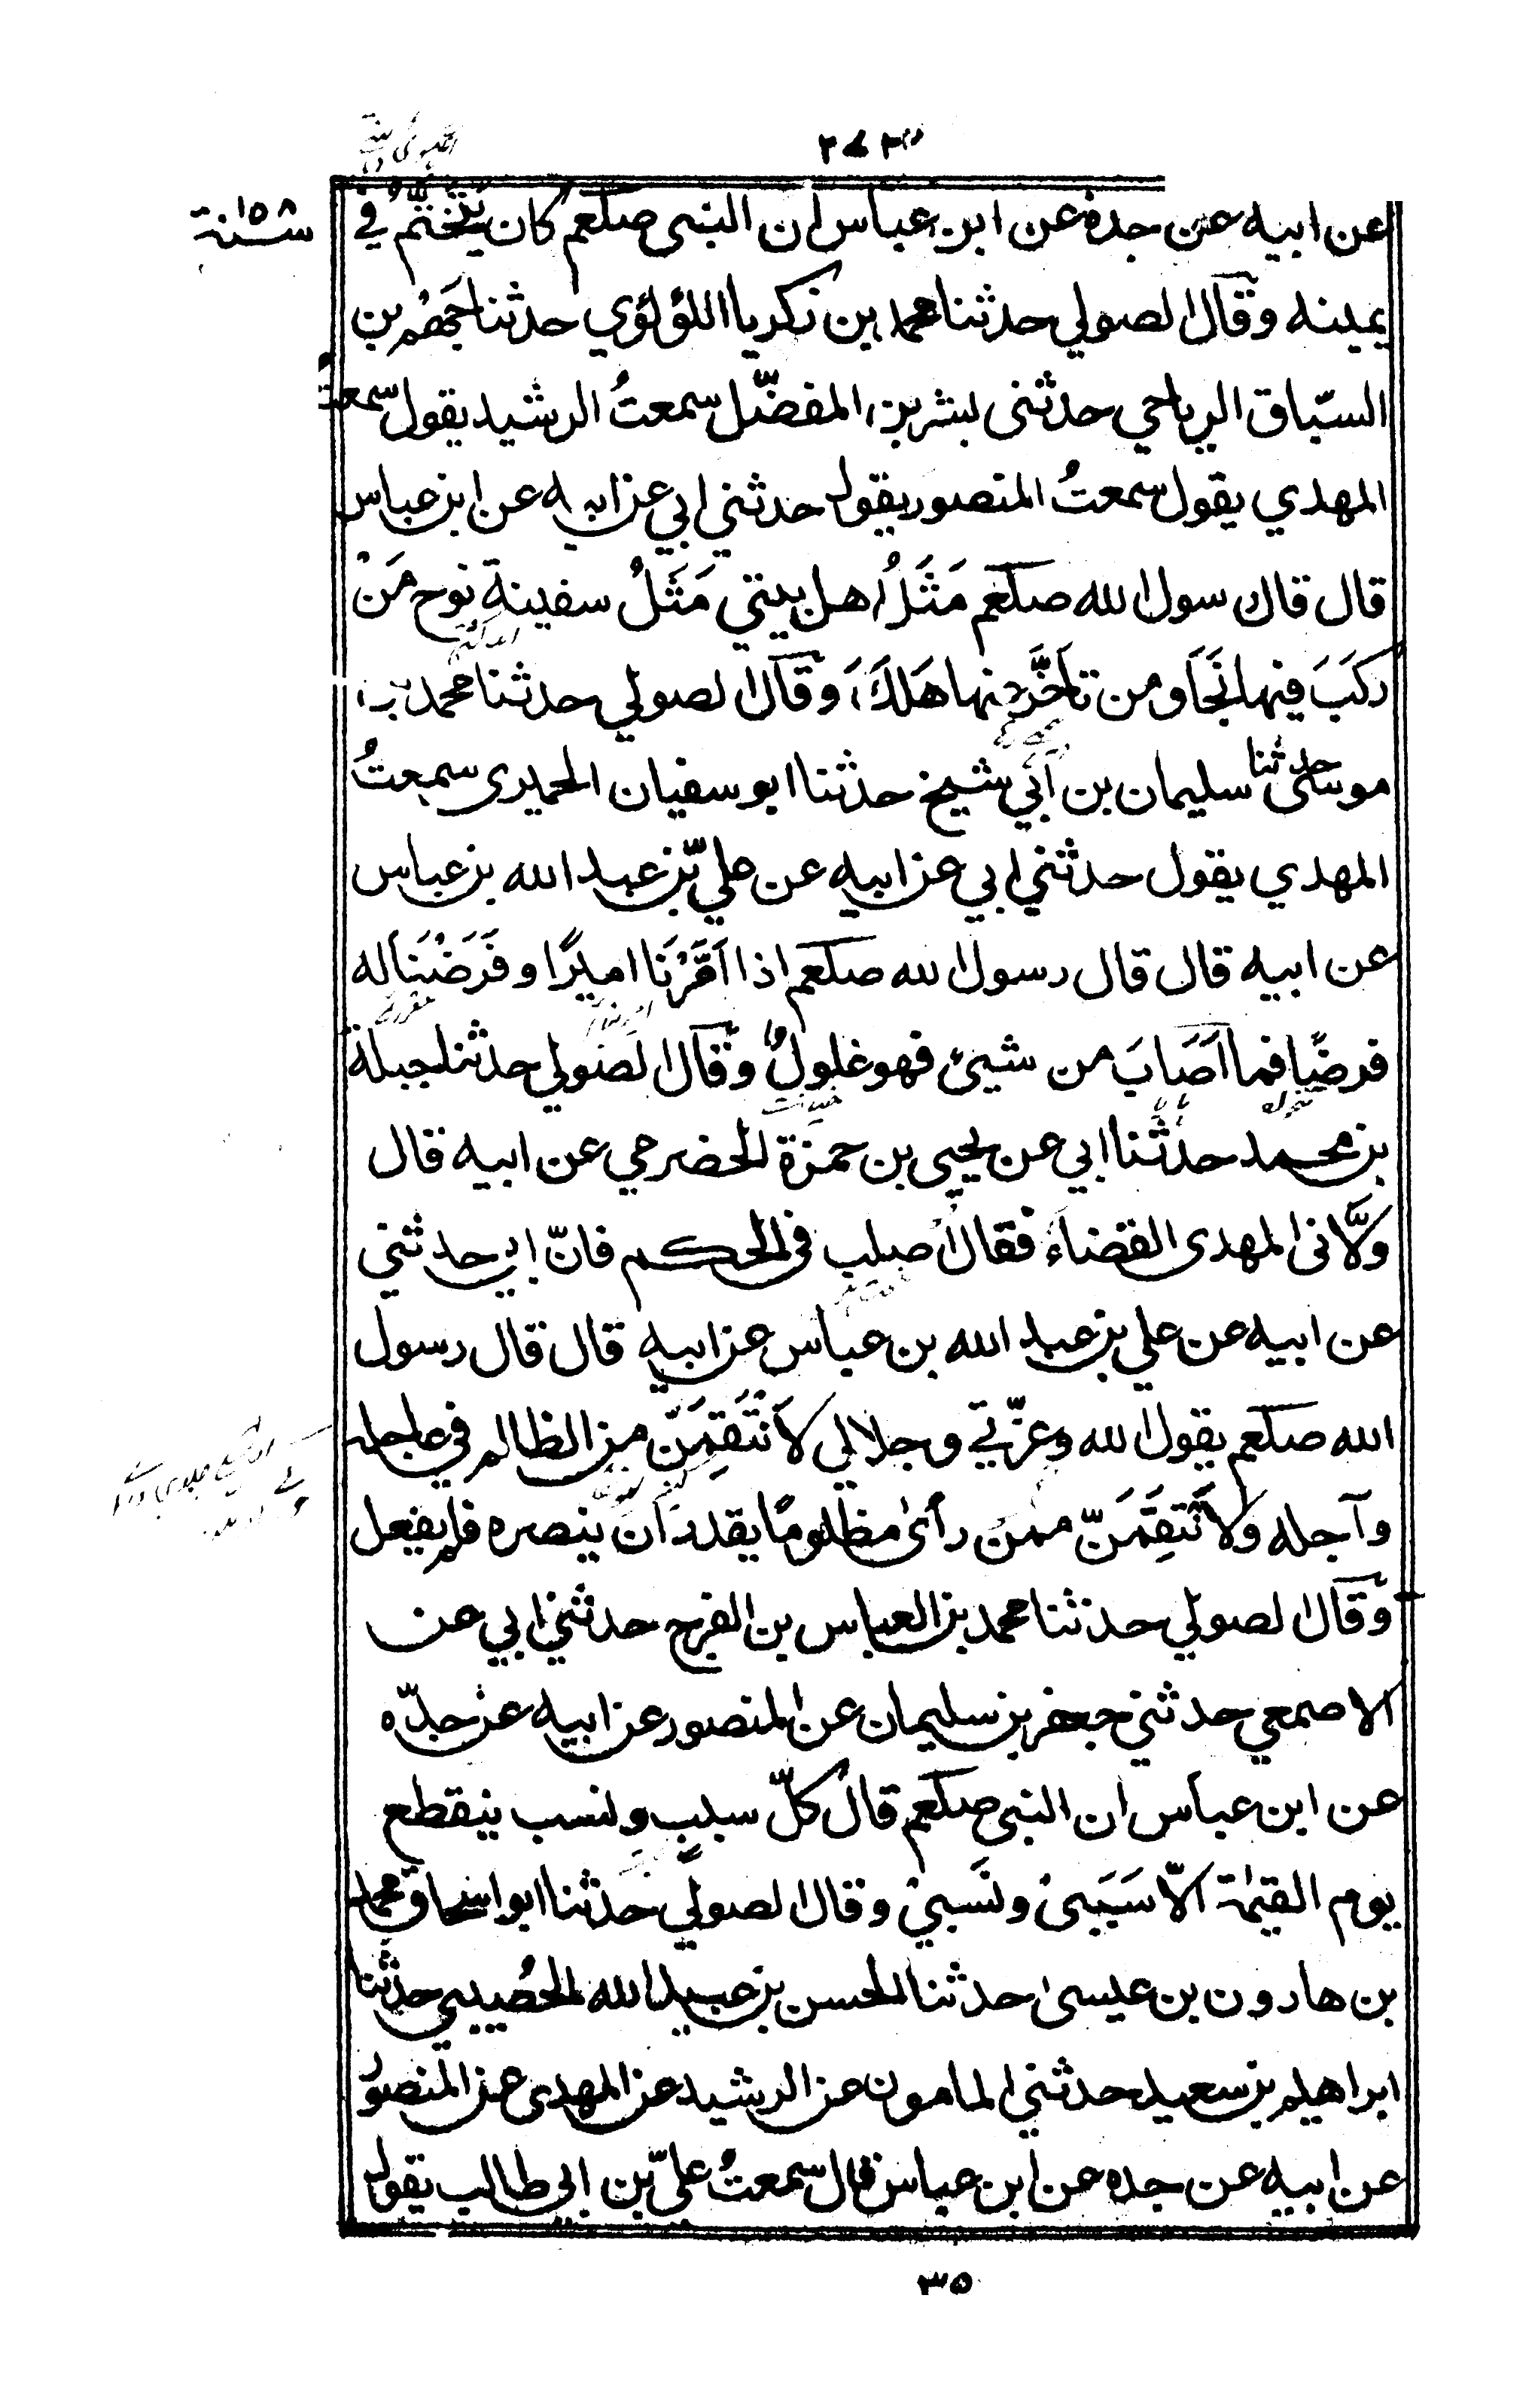 ٢٧٣
سنة ١٥٨
عن ابيه عن جده عن ابن عباس ان النبى صلعم كان يتختّم في
يمينه وقال الصولي حدثنا محمد بن زكريا اللؤلؤي حدثنا جَهْم بن
السبّاق الرياحي حدثنى بشر بن المفضّل سمعتُ الرشيد يقول سمعتُ
المهدي يقول سمعتُ المنصور يقول حدثني ابي عن ابيه عن ابن عباس
قال قال سول الله صلعم مَثَلُ اهل بيتي مَثَلُ سفينةِ نوح مَنْ
ركَبَ فيها نَجَا ومن تاَخَّر عنها هَلَكَ، وقال الصولي حدثنا محمد بن
موسى حدثنا سليمان بن اَبي شيخ حدثنا ابو سفيان الحميرى سمعتُ
المهدي يقول حدثني ابي عن ابيه عن علي بن عبد الله بن عباس
عن ابيه قال قال رسول الله صلعم اذا اَمَّرْنَا اميرًا و فَرَضْنَا له
فرضًا فما اَصَابَ من شيئ فهو غلولٌ وقال الصولي حدثنا جبلة
بن محمد حدثنا ابي عن يحيى بن حمزة الحضرمي عن ابيه قال
ولَّانى المهدى القضاءَ فقال اُصلب فى الحكم فانّ ابي حدثني
عن ابيه عن علي بن عبد الله بن عباس عن ابيه قال قال رسول
الله صلعم يقول الله وعزّتي وجلالي لاَنْتَقِمَنّ من الظالم في عاجله
وآجله ولاَنْتَقِمَنّ ممن رأى مظلومًا يقدر ان ينصره فلم يفعل
وقال الصولي حدثنا محمد بن العباس بن الفرج حدثني ابي عن
الاصمعي حدثني جعفر بن سليمان عن المنصور عن ابيه عن جدّه
عن ابن عباس ان النبى صلعم قال كلّ سبب ونسب ينقطع
يوم القيٰمة الاّ سَبَبىْ ونَسبيْ وقال الصولي حدثنا ابو اسحاق محمد
بن هارون بن عيسىٰ حدثنا الحسن بن عبيد الله الحُصيبي حدثنا
ابراهيم بن سعيد حدثني المامون عن الرشيد عن المهدى عن المنصور
عن ابيه عن جده عن ابن عباس قال سمعتُ علىّ بن ابى طالب يقول
٣٥